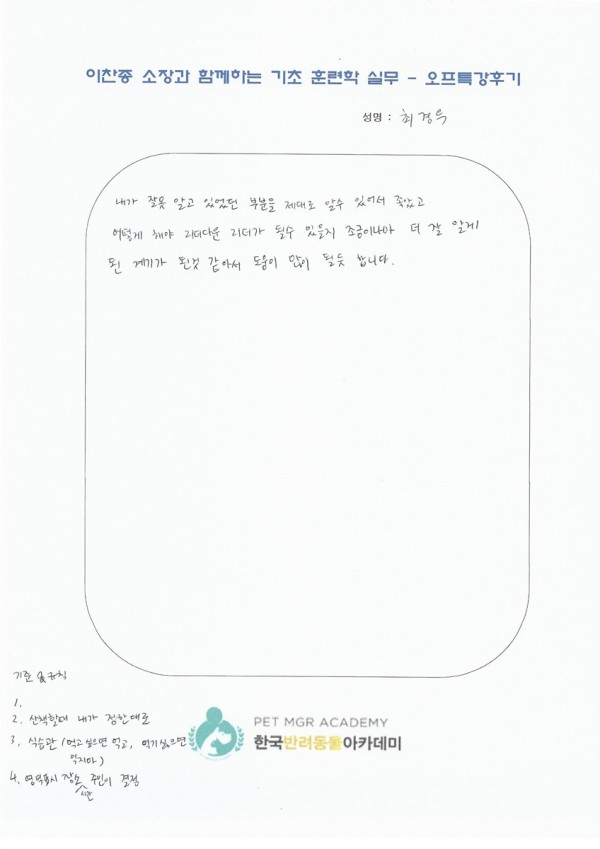 이찬종 소장과 함께하는 기초 훈련학 실무 - 오프특강후기
성명 : 최경우
내가 잘못 알고 있었던 부분을 제대로 알수 있어서 좋았고
어떻게 해야 리더다운 리더가 될수 있을지 조금이나마 더 잘 알게
된 계기가 된것 같아서 도움이 많이 될듯 합니다.
기준 및 규칙
1.
2. 산책할때 내가 정한대로
3. 식습관 (먹고 싶으면 먹고, 먹기싫으면
먹지마)
4. 영역표시 장소 주인이 결정
시간
PET MGR ACADEMY
한국반려동물아카데미